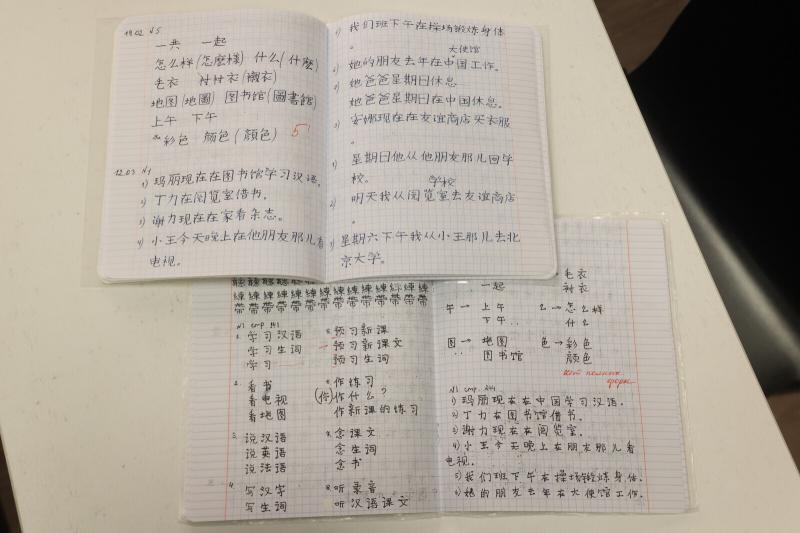 19.02 №5
一共 一起
怎么样(怎麼樣) 什么(什麽)
毛衣 衬衣(襯衣)
地图(地圖) 图书馆(圖書館)
上午 下午
彩色 颜色(顏色) 5
12.03 №1
1) 玛丽现在在图书馆学习汉语。
2) 丁力在阅览室借书。
3) 谢力现在在家看杂志。
4) 小王今天晚上在他朋友那儿看
电视。
我们班下午在操场锻炼身体
。
大使馆
她的朋友去年在中国工作。
她爸爸星期日休息
她爸爸星期日在中国休息。
安娜现在在友谊商店买衣服
。
星期日他从他朋友那儿回学
校。
学校
明天我从阅览室去友谊商店
。
星期六下午我从小王那儿去北
京大学。
聽 聽 聽 聽 聽
練 練 練 練 練 練 練 練 練 練 練 練
帶 帶 帶 帶 帶 帶 帶 帶 帶 帶 帶 帶
1. 学习汉语
学习生词
学习
2. 看书
看电视
看地图
3. 说汉语
说英语
说法语
4. 写汉字
写生词
预习新课
预习新课文
预习生词
作练习
(你)作什么?
作新课的练习
念课文
念生词
念书
听录音
听汉语课文
毛衣
一起 衬衣
午→ 上午 么→ 怎么样
下午 什么
图→ 地图 色→ 彩色
图书馆 颜色
№1 стр. 244
1) 玛丽现在在中国学习汉语.
2) 丁力在图书馆借书.
3) 谢力现在在阅览室.
4) 小王今天晚上在朋友那儿看
电视.
5) 我们班下午在操场锻炼身体.
6) 她的朋友去年在大使馆工作.